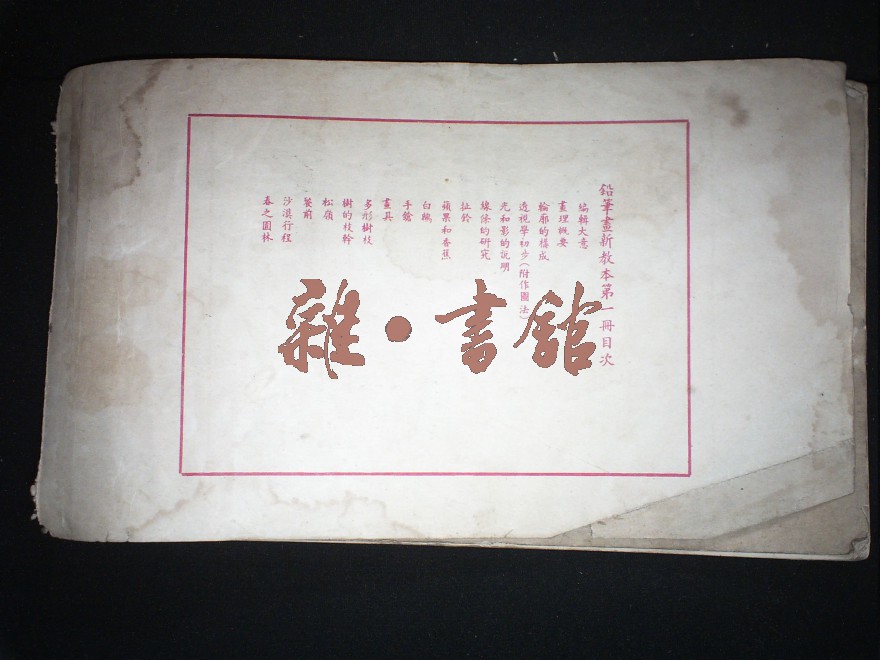 鉛筆畫新教本第一冊目次
編輯大意
畫理概要
輪廓的構成
透視學初步(附作圖法)
光和影的説明
線條的研究
扯鈴
蘋果和香蕉
白鵝
手籠
畫具
多形樹枝
樹的枝幹
松嶺
餐前
沙漠行程
春之園林
雜·書館